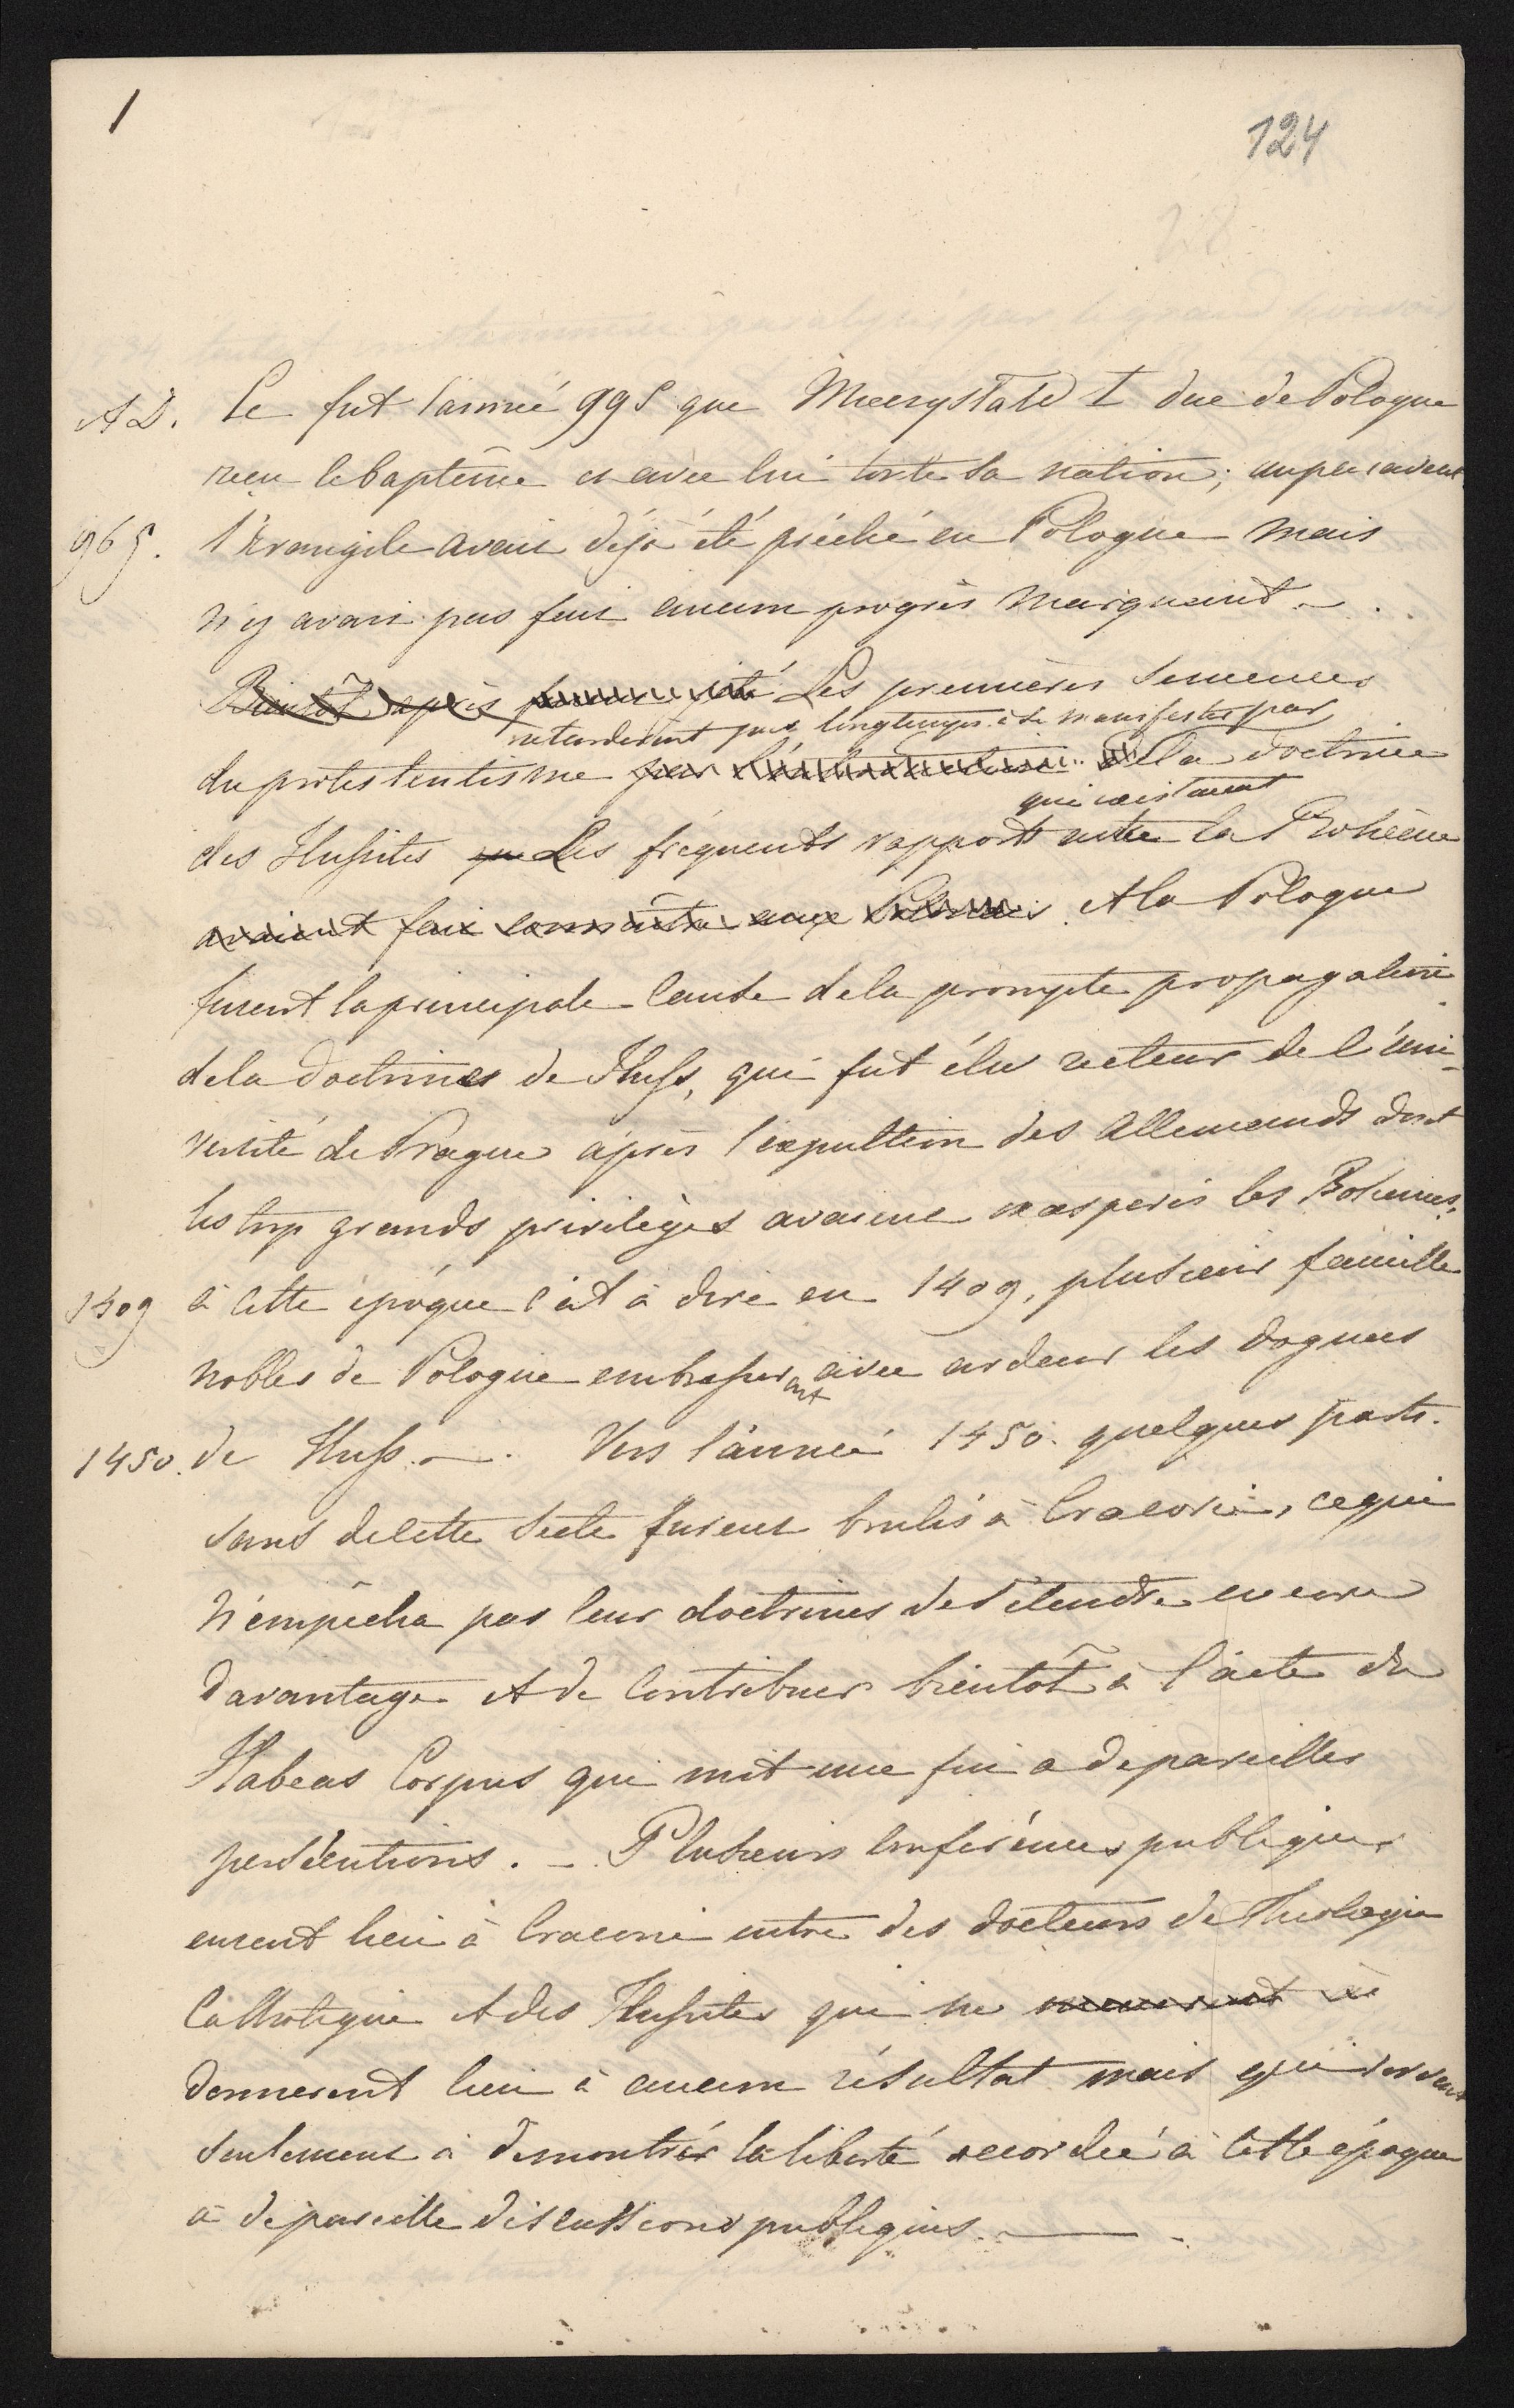 1
124
A D. Ce fut l'année 995 que Mieczystaw I duc de Pologne
reçu le baptême et avec lui toute sa nation; auparavent
965. l'évangile avait déjà été préché en Pologne mais
n'y avait pas fait aucun progrès marquant
Bientôt après Les premières semences
ne tarderent pas longtemps à se manifester par
du protestentisme par la doctrine
qui existaient
des Hussites Les fréquents rapports entre la Bohême
avaient fait connaître aux Polonais et la Pologne
furent la principale cause de la prompte propagation
de la doctrines de Huss, qui fut élu recteur de l'uni-
versité de Prague après l'expultion des Allemands dont
les trop grands privilèges avaient exasperés les Bohemes,
1409 à cette époque c'est à dire en 1409, plusieurs famille
nobles de Pologne embrasserent avec ardeur les dogmes
1450. de Huss. Vers l'année 1450. quelques parti-
sans de cette secte furent brulés à Cracovie, ce qui
n'empêcha pas leur doctrines de s'étendre encore
davantage et de contribuer bientôt à l'acte du
Habeas Corpus qui mit une fin a de pareilles
persécutions. Plusieurs conférences publiques
eurent lieu à Cracovie entre des docteurs de Theologie
Catholique et des Hussites qui ne menerent à
donnerent lieu à aucun résultat mais qui servent
seulement à démontrér la liberté accordée à cette époque
à de pareille discussions publiques.